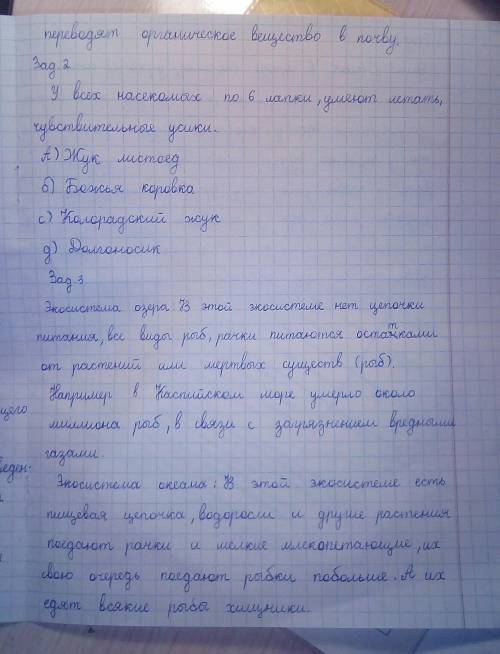 переводят органическое вещество в почву.
Зад. 2
У всех насекомых по 6 лапки, умеют летать,
чувствительные усики.
а) Жук листоед
б) Божья коровка
с) Колорадский жук
д) Долгоносик
Зад. 3
Экосистема озера: В этой экосистеме нет цепочки
питания, все виды рыб, рачки питаются остатками
от растений или мертвых существ (рыб).
Например в Каспийском море умерло около
миллиона рыб, в связи с загрязнением вредными
газами.
Экосистема океана: В этой экосистеме есть
пищевая цепочка, водоросли и другие растения
поедают рачки и мелкие млекопитающие, их
свою очередь поедают рыбки побольше. А их
едят всякие рыбы хищники.